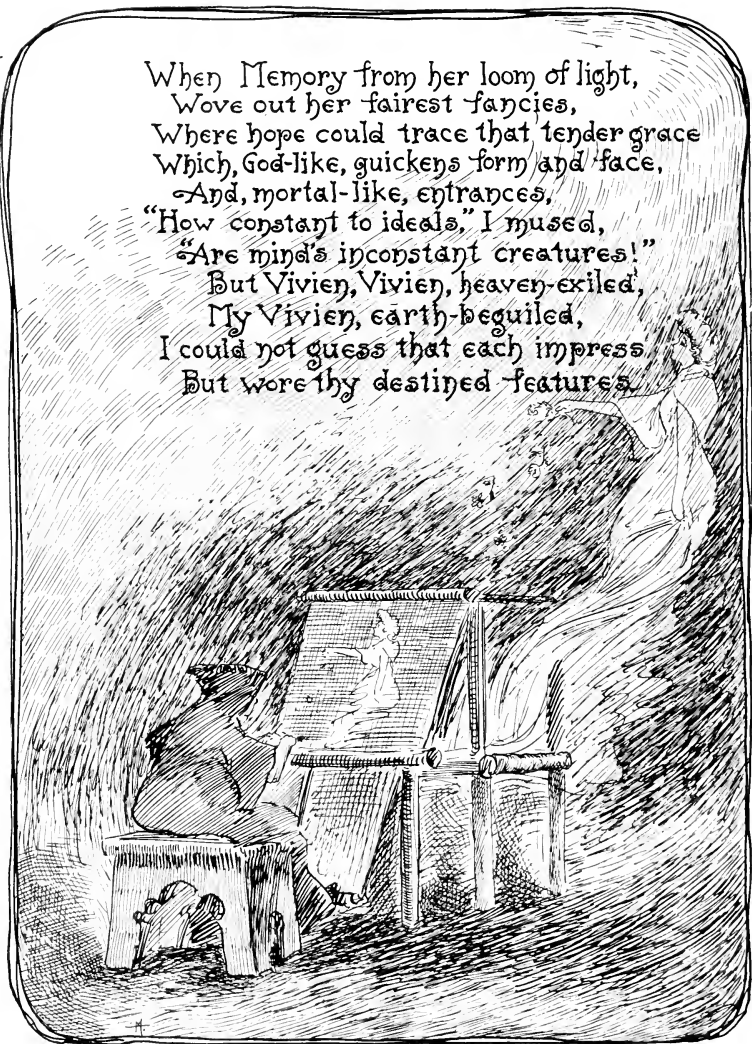 When Memory from her loom of light,
Wove out her fairest fancies,
Where hope could trace that tender grace
Which, God-like, quickens form and face,
And, mortal-like, entrances,
"How constant to ideals," I mused,
"Are mind's inconstant creatures!"
But Vivien, Vivien, heaven-exiled,
My Vivien, earth-beguiled,
I could not guess that each impress
But wore thy destined features.
M.